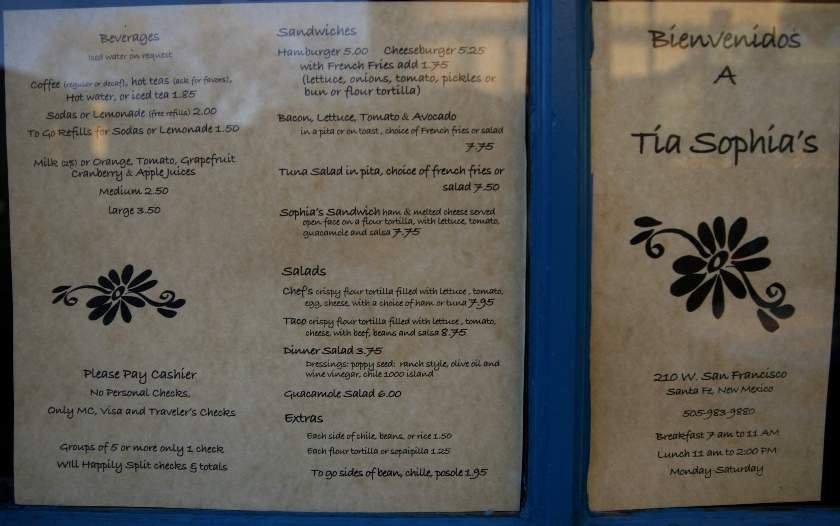 Beverages
Iced water on request
Coffee (regular or decaf), hot teas (ask for favors),
Hot water, or iced tea 1.85
Sodas or Lemonade (free refills) 2.00
To Go Refills for Sodas or Lemonade 1.50
Milk (2%) or Orange, Tomato, Grapefruit
Cranberry & Apple Juices
Medium 2.50
large 3.50
Please Pay Cashier
No Personal Checks,
Only MC, Visa and Traveler's Checks
Groups of 5 or more only 1 check
Will Happily Split checks & totals
Sandwiches
Hamburger 5.00 Cheeseburger 5.25
with French Fries add 1.75
(lettuce, onions, tomato, pickles or
bun or flour tortilla)
Bacon, Lettuce, Tomato & Avocado
in a pita or on toast, choice of French fries or salad
7.75
Tuna Salad in pita, choice of french fries or
salad 7.50
Sophia's Sandwich ham & melted cheese served
open face on a flour tortilla, with lettuce, tomato,
guacamole and salsa 7.75
Salads
Chef's crispy flour tortilla filled with lettuce, tomato,
egg, cheese, with a choice of ham or tuna 7.95
Taco crispy flour tortilla filled with lettuce, tomato,
cheese, with beef, beans and salsa 8.75
Dinner Salad 3.75
Dressings: poppy seed: ranch style, olive oil and
wine vinegar, chile 1000 island
Guacamole Salad 6.00
Extras
Each side of chile, beans, or rice 1.50
Each flour tortilla or sopaipilla 1.25
To go sides of bean, chile, posole 1.95
Bienvenidos
A
Tia Sophia's
210 W. San Francisco
Santa Fe, New Mexico
505-983-9880
Breakfast 7 am to 11 AM
Lunch 11 am to 2:00 PM
Monday-Saturday